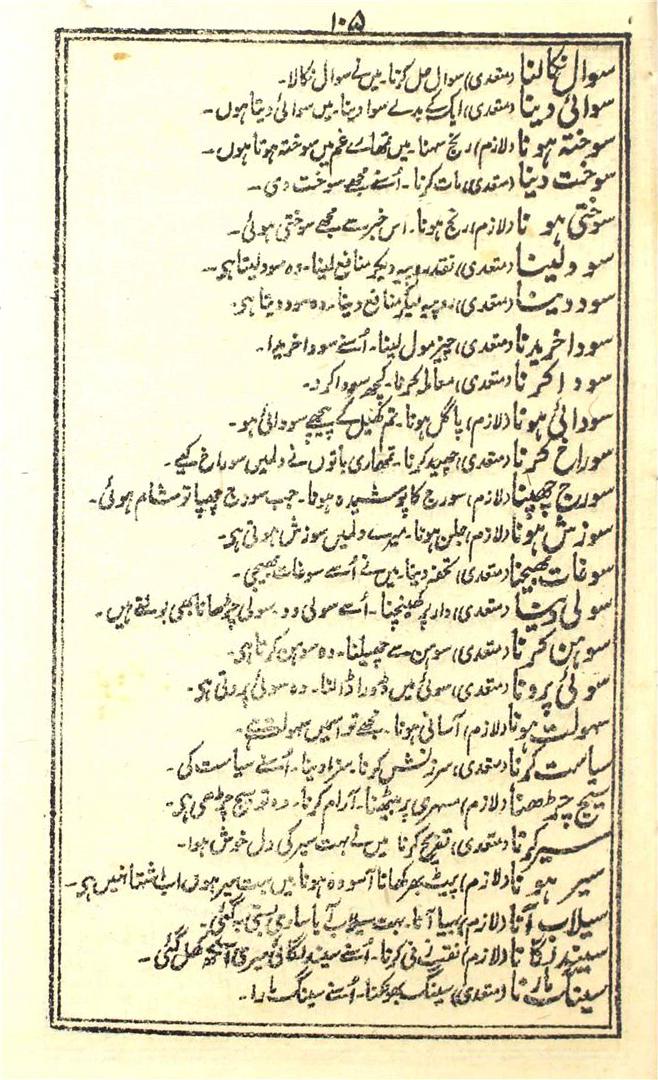 ۱۰۵
سوال نکالنا (متعدی) سوال حل کرنا۔ میں نے سوال نکالا۔
سوائی دینا (متعدی) ایک کے بدلے سوا دینا۔ میں سوائی دیتا ہوں۔
سوختہ ہونا (لازم) رنج سہنا۔ میں تمھارے غم میں سوختہ ہوتا ہوں۔
سوخت دینا (متعدی) مات کرنا۔ اُسنے مجھے سوخت دی۔
سوختی ہونا (لازم) رنج ہونا۔ اس خبر سے مجھے سوختی ہوئی۔
سود لینا (متعدی) نقد روپیہ دیکر منافع لینا۔ وہ سود لیتا ہی۔
سود دینا (متعدی) روپیہ لیکر منافع دینا۔ وہ سود دیتا ہی۔
سودا خریدنا (متعدی) چیز مول لینا۔ اُسنے سودا خریدا۔
سودا کرنا (متعدی) معاملہ کرنا۔ کچھ سودا کرو۔
سودائی ہونا (لازم) پاگل ہونا۔ تم کھیل کے پیچھے سودائی ہو۔
سوراخ کرنا (متعدی) چھید کرنا۔ تمھاری باتوں نے دلمیں سوراخ کیے۔
سورج چھپنا (لازم) سورج کا پوشیدہ ہونا۔ جب سورج چھپا تو شام ہوئی۔
سوزش ہونا (لازم) جلن ہونا۔ میرے دلمیں سوزش ہوتی ہی۔
سوغات بھیجنا (متعدی) تحفہ دینا۔ میں نے اُسے سوغات بھیجی۔
سولی دینا (متعدی) دار پر کھینچنا۔ اُسے سولی دو۔ سولی چڑھانا بھی بولتے ہیں۔
سوہن کرنا (متعدی) سوہن سے چھیلنا۔ وہ سوہن کرتا ہی۔
سوئی پرونا (متعدی) سوئی میں ڈورا ڈالنا۔ وہ سوئی پروتی ہی۔
سہولت ہونا (لازم) آسانی ہونا۔ مجھے تو اسمیں سہولت ہے۔
سیاست کرنا (متعدی) سرزنش کرنا۔ سزا دینا۔ اُسنے سیاست کی۔
سیج چڑھنا (لازم) مسہری پر بیٹھنا۔ آرام کرنا۔ وہ تو سیج چڑھی ہی۔
سیر کرنا (متعدی) تفریح کرنا میں نے بہت سیر کی دل خوش ہوا۔
سیر ہونا (لازم) پیٹ بھر کھانا آسودہ ہونا میں بہت سیر ہوں اب اشتہا نہیں ہی۔
سیلاب آنا (لازم) بہیا آنا۔ بہت سیلاب آیا ساری بستی بہ گئی۔
سیند لگانا (لازم) نقب زنی کرنا۔ اُسنے سیند لگائی میری آنکھ کھل گئی۔
سینگ مارنا (متعدی) سینگ بھونکنا۔ اُسنے سینگ مارا۔